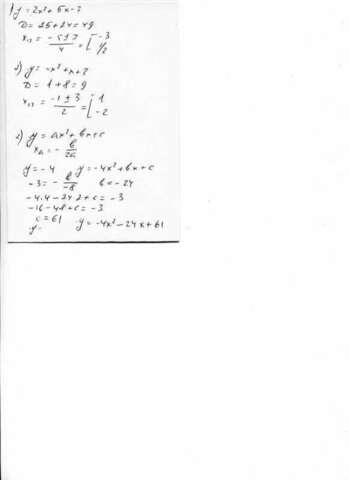 1) y = 2x² + 5x - 3
D = 25 + 24 = 49
x₁,₂ = (-5 ± 7)/4 = [ -3 1/2
2) y = -x² + x + 2
D = 1 + 8 = 9
x₁,₂ = (-1 ± 3)/2 = [ 1 -2
2) y = ax² + bx + c
x = - b/2a
y = -4 y = -4x² + bx + c
-3 = - b/-8 b = -24
-4·4 - 24·2 + c = -3
-16 - 48 + c = -3
c = 61 y = -4x² - 24x + 61
y